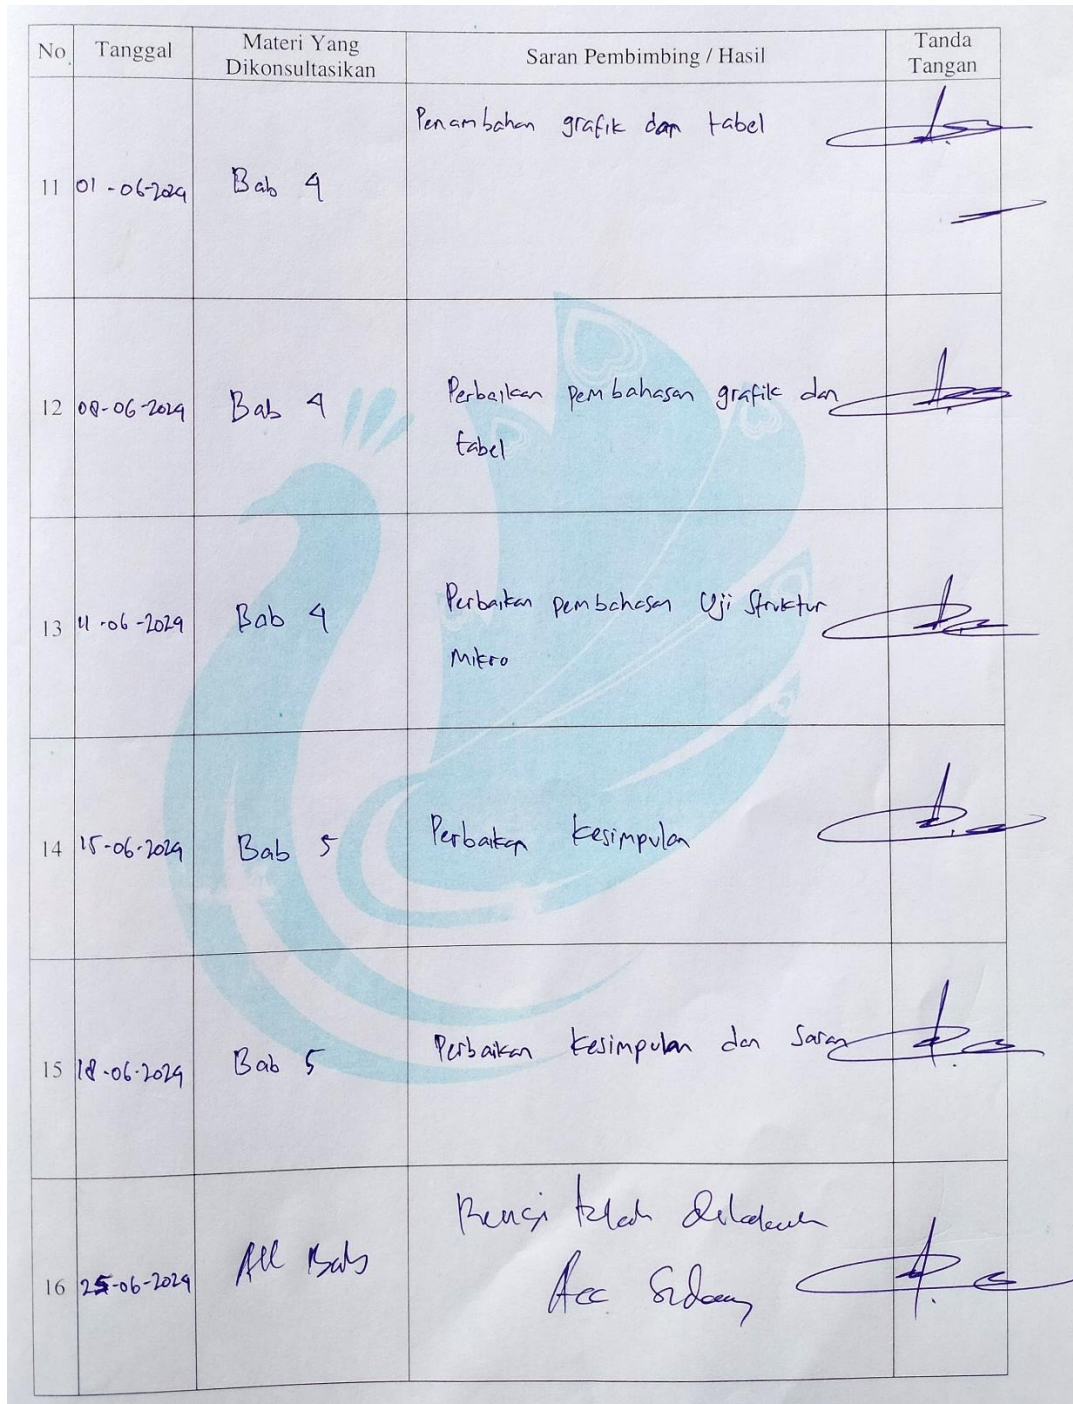 No. Tanggal Materi Yang Dikonsultasikan Saran Pembimbing / Hasil Tanda Tangan
11 01-06-2024 Bab 4 Penambahan grafik dan tabel
12 08-06-2024 Bab 4 Perbaikan pembahasan grafik dan
tabel
13 11-06-2024 Bab 4 Perbaikan pembahasan Uji Struktur
Mikro
14 15-06-2024 Bab 5 Perbaikan kesimpulan
15 18-06-2024 Bab 5 Perbaikan kesimpulan dan saran
16 25-06-2024 All Bab Revisi telah dilakukan
Acc Sidang